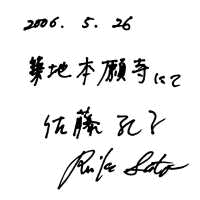 2006. 5. 26
築地本願寺にて
佐藤
Sato